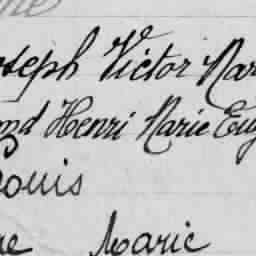 oseph Victor Mar
nd Henri Marie Eug
ouis
ne Marie